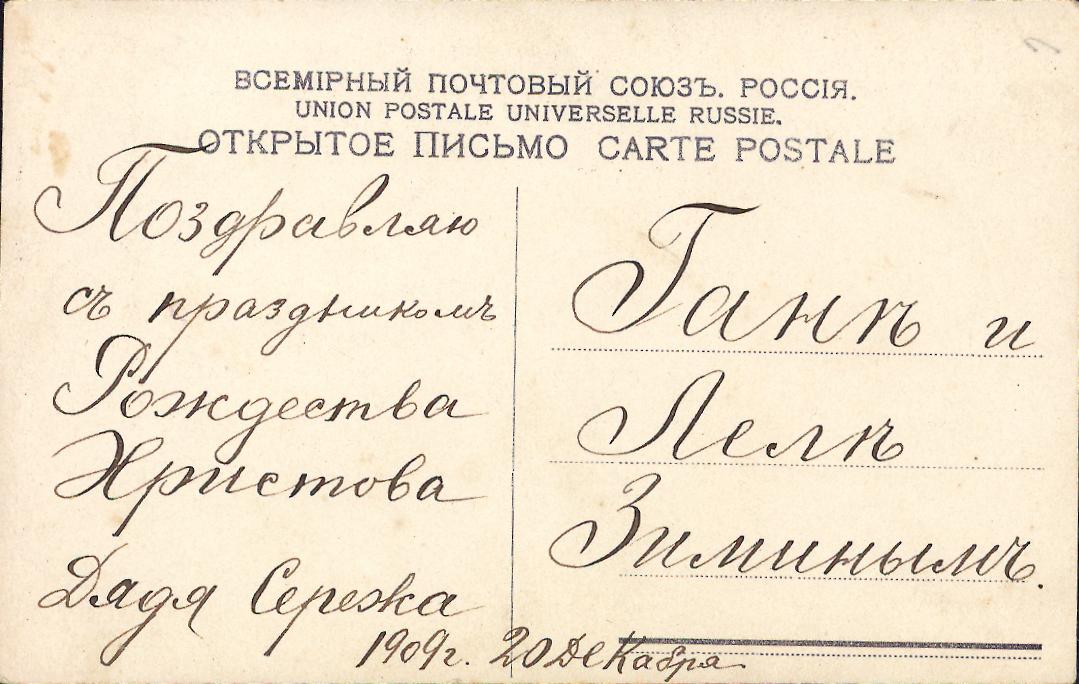 ВСЕМІРНЫЙ ПОЧТОВЫЙ СОЮЗЪ. РОССІЯ.
UNION POSTALE UNIVERSELLE RUSSIE.
ОТКРЫТОЕ ПИСЬМО CARTE POSTALE
Поздравляю
съ праздникомъ
Рождества
Христова
Дядя Сережа
Ганѣ и
Лелѣ
Зиминымъ.
1909г. 20 Декабря